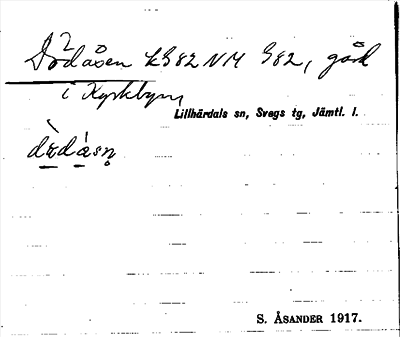 Dödåsen LS 82 NM S 82, gård
i Kyrkbyn,
Lillhärdals sn, Svegs tg, Jämtl. l.
S. ÅSANDER 1917.